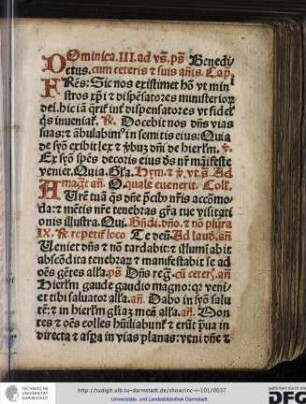 Dominica.III.ad vs̄.ps̄ Benedi
ctus.cum ceteris ⁊ suis an̄is.Cap̄
FRes: Sic nos existimet hō vt mini
stros xp̄i ⁊ dispēsatores ministeriorꝝ
dei.hic iā q̄rit̄ int̄ dispensatores vt fidel̄
qs inueniat̄. R̄. Docebit nos dn̄s vias
suas: ⁊ ābulabim⁹ in semitis eius: Quia
de syō exibit lex ⁊ v̄buȝ dn̄i de hierl̄m. v̄.
Ex syō spēs decoris eius ds nr̄ māifeste
veniet. Quia. Gl̄a. Hym. ⁊ v̄. vt s̄. Ad
magt̄ an̄. O. quale euenerit. Coll̄.
AUrē tuā qs dn̄e p̄cib⁹ nr̄is accōmo
da: ⁊ mētis nr̄e tenebras gr̄a tue visitati
onis illustra. Qui. Bn̄di. dn̄o. ⁊ nō plura
IX. R̄ repetit̄ loco Te deū. Ad laud̄. an̄
Ueniet dn̄s ⁊ nō tardabit: ⁊ illumīabit
abscōdita tenebraꝝ ⁊ manifestabit se ad
oēs gētes all̄a. ps̄ Dn̄s reḡ. cū ceter̄. an̄
Hierl̄m gaude gaudio magno: qr̄ veni
et tibi saluator all̄a. an̄. Dabo in syō salu
tē: ⁊ in hierl̄m gl̄aȝ meā all̄a. an̄. Mon
tes ⁊ oēs colles hūiliabunt̄ ⁊ erūt p̄ua in
directa ⁊ asp̄a in vias planas: veni dn̄e ⁊
TECHNISCHE
UNIVERSITÄT
DARMSTADT
http://tudigit.ulb.tu-darmstadt.de/show/inc-i-101/0037
Universitäts- und Landesbibliothek Darmstadt
gefördert durch die
DFG